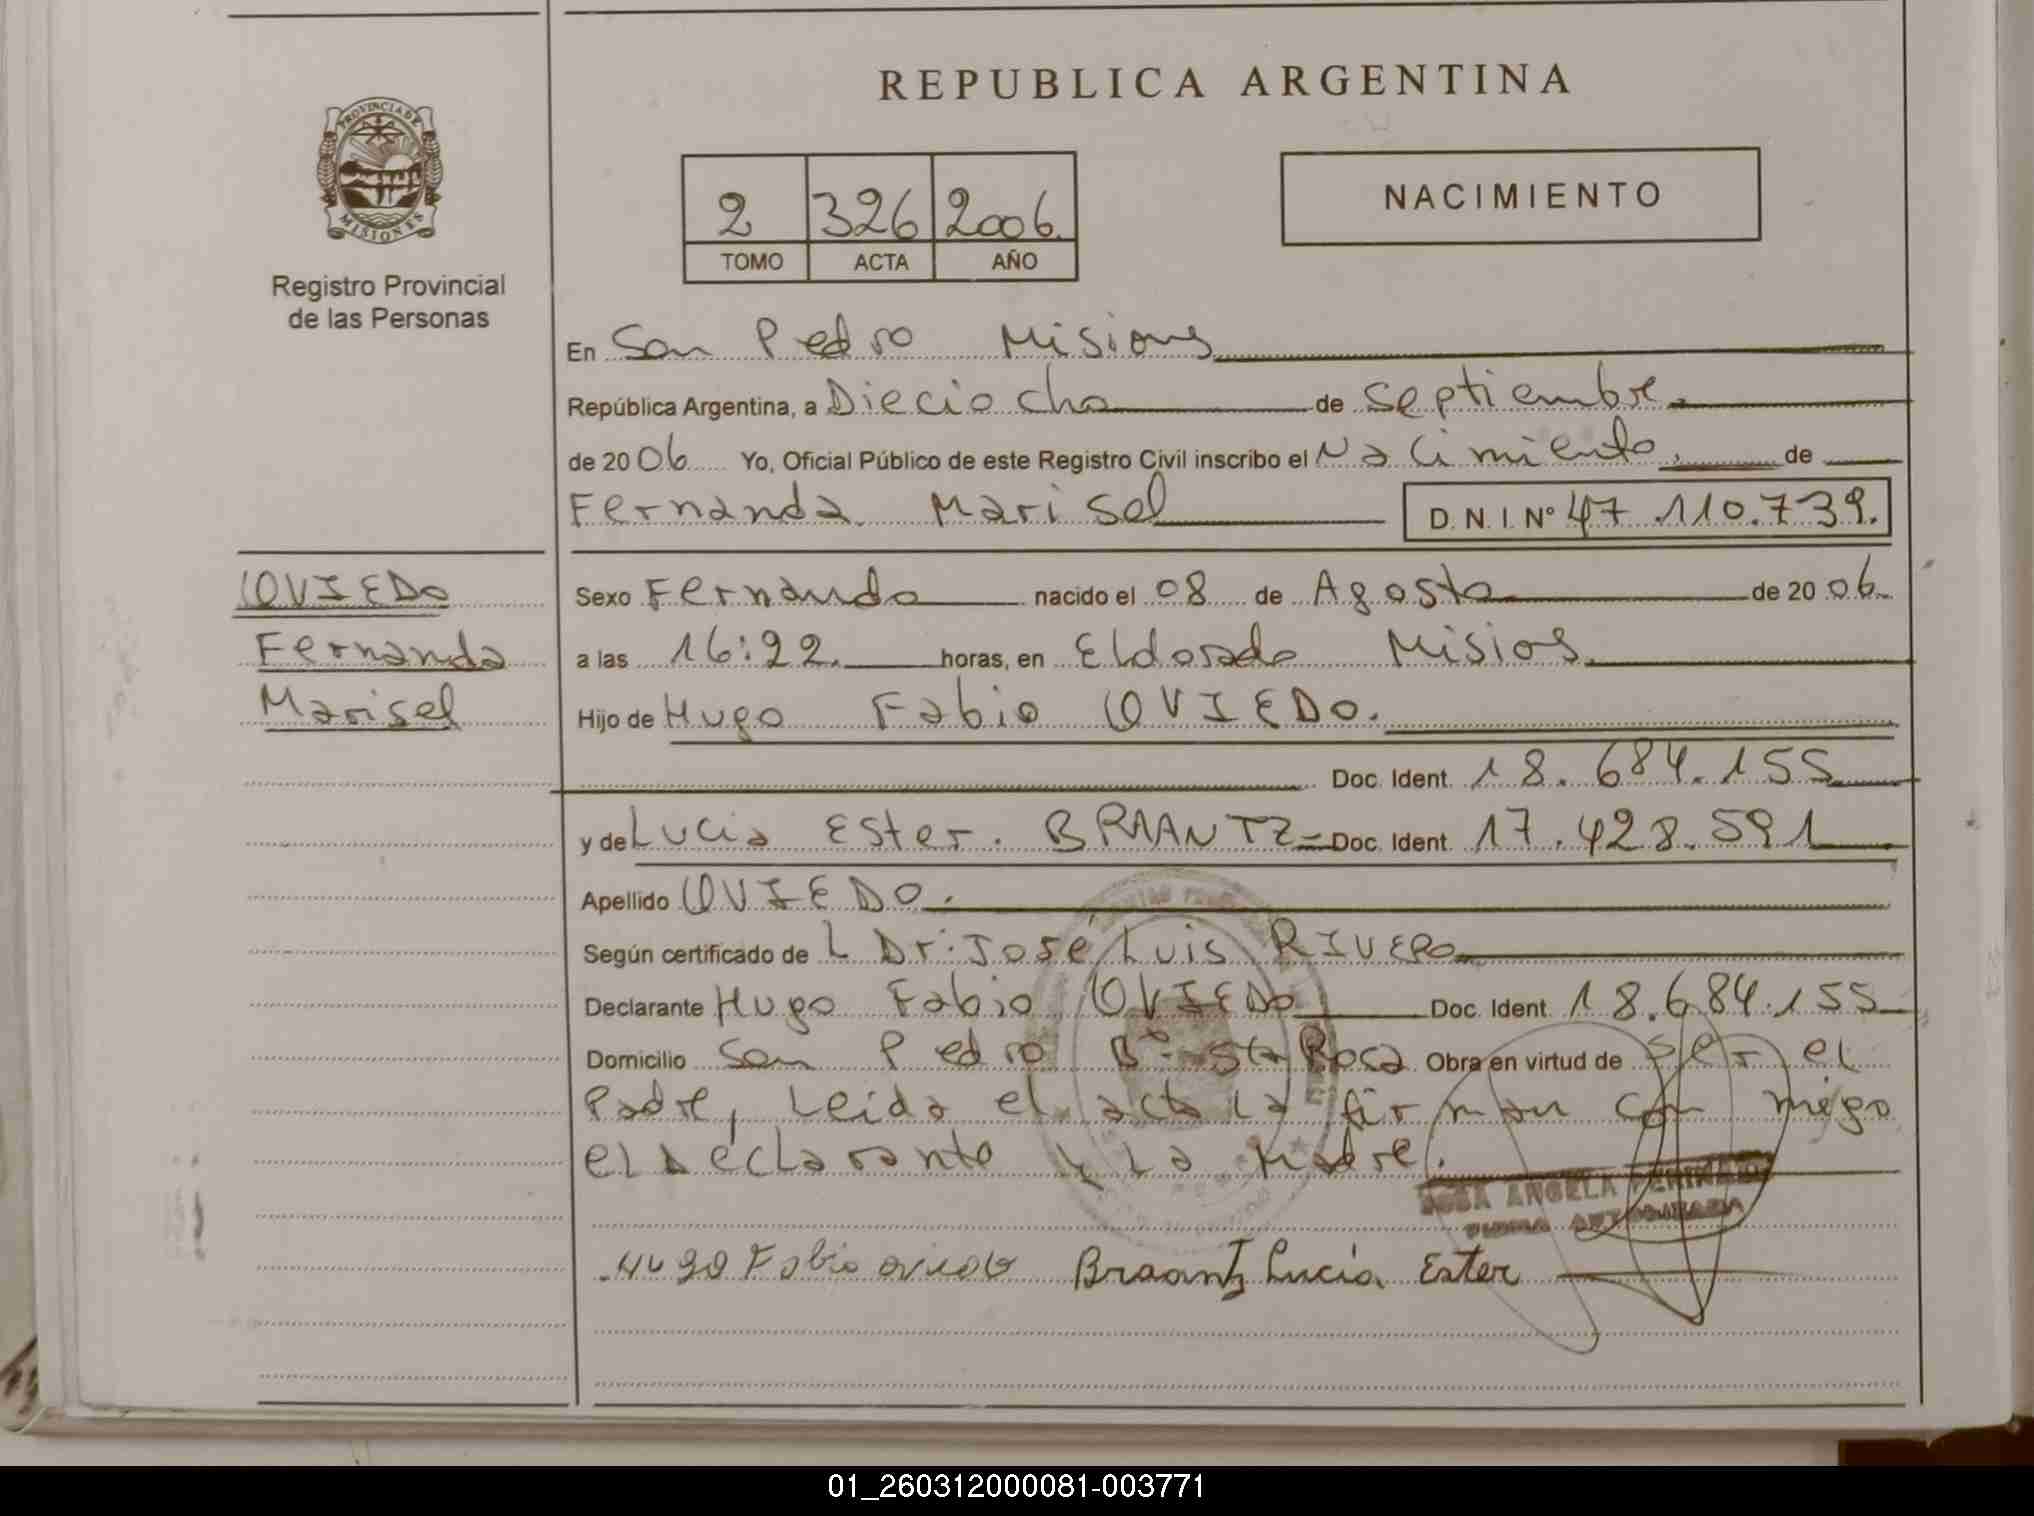 REPUBLICA ARGENTINA
PROVINCIA DE
MISIONES
Registro Provincial
de las Personas
2 326 2006.
TOMO ACTA AÑO
NACIMIENTO
En San Pedro Misiones
República Argentina, a Dieciocho de Septiembre.
de 2006 Yo, Oficial Público de este Registro Civil inscribo el Nacimiento, de
Fernanda Marisel D.N.I.Nº 47.110.739.
OVIEDO
Fernanda
Marisel
Sexo Fernanda nacido el 08 de Agosto de 2006.
a las 16:22. horas, en Eldorado Misios
Hijo de Hugo Fabio OVIEDO.
Doc. Ident. 18.684.155
y de Lucia Ester. BRAANTZ= Doc. Ident. 17.428.591
Apellido OVIEDO.
Según certificado de L Dr: José Luis RIVERO
Declarante Hugo Fabio OVIEDO Doc. Ident. 18.684.155
Domicilio San Pedro Bº Sta Rosa Obra en virtud de ser el
Padre, Leida el acta la firman con migo
el Declarante y La Madre.
ROSA ANGELA
FIRMA AUTORIZADA
Fabio oviedo Braantz Lucía Ester
01_260312000081-003771